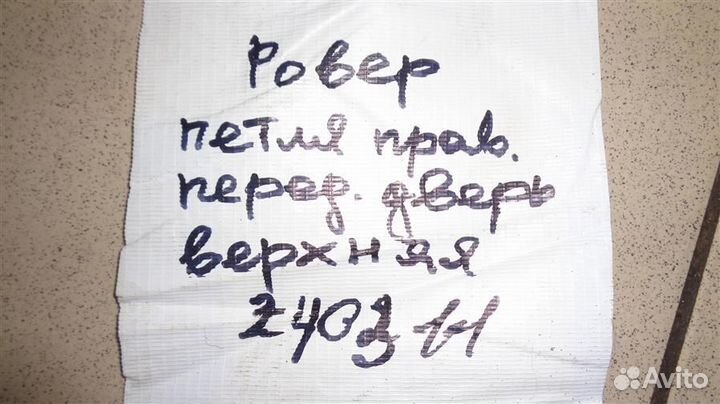 Ровер
петля прав.
перед. дверь
верхняя
2403-11
Avito